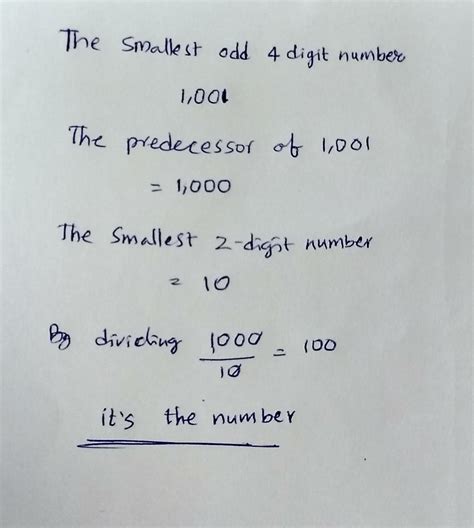 The Smallest odd 4 digit number
1,001
The predecessor of 1,001
= 1,000
The Smallest 2-digit number
= 10
By dividing 1000/10 = 100
it's the number